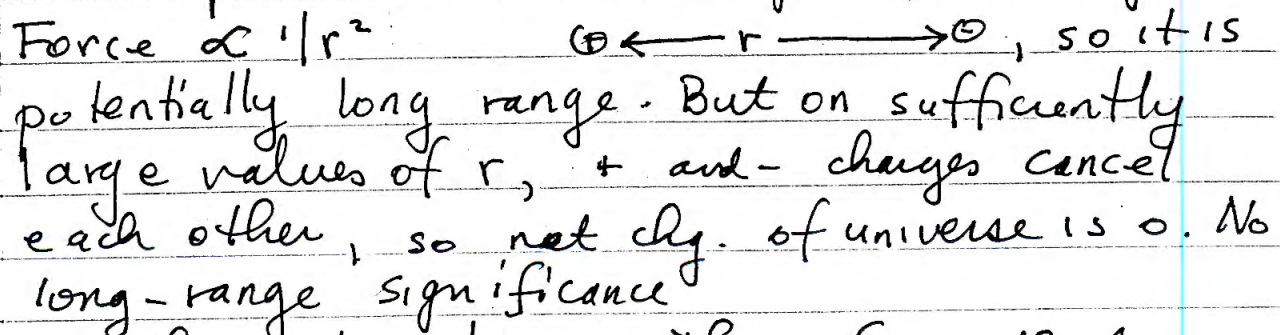 Force ∝ 1/r² ⊕ ← r → ⊖, so it is
potentially long range. But on sufficiently
large values of r, + and - charges cancel
each other, so net chg. of universe is 0. No
long-range significance